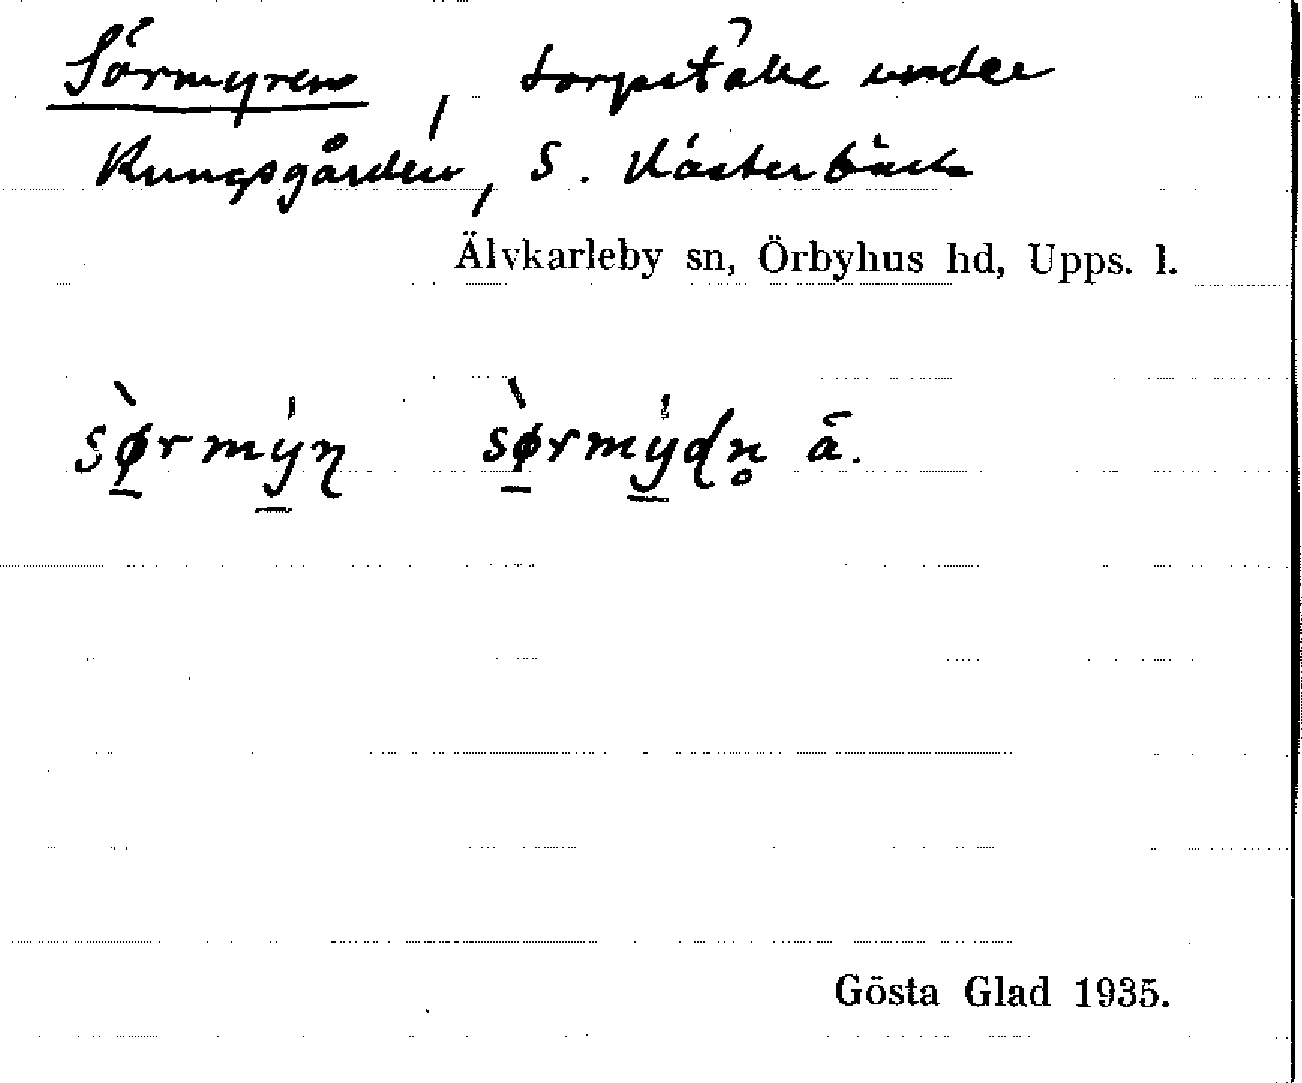 Sörmyren, torpställe under
Kungsgården, S. Västerbäck
Älvkarleby sn, Örbyhus hd, Upps. l.
sø̠̀rmý̠ɳ sø̠̀rmý̠ɖn̥ ä.
Gösta Glad 1935.